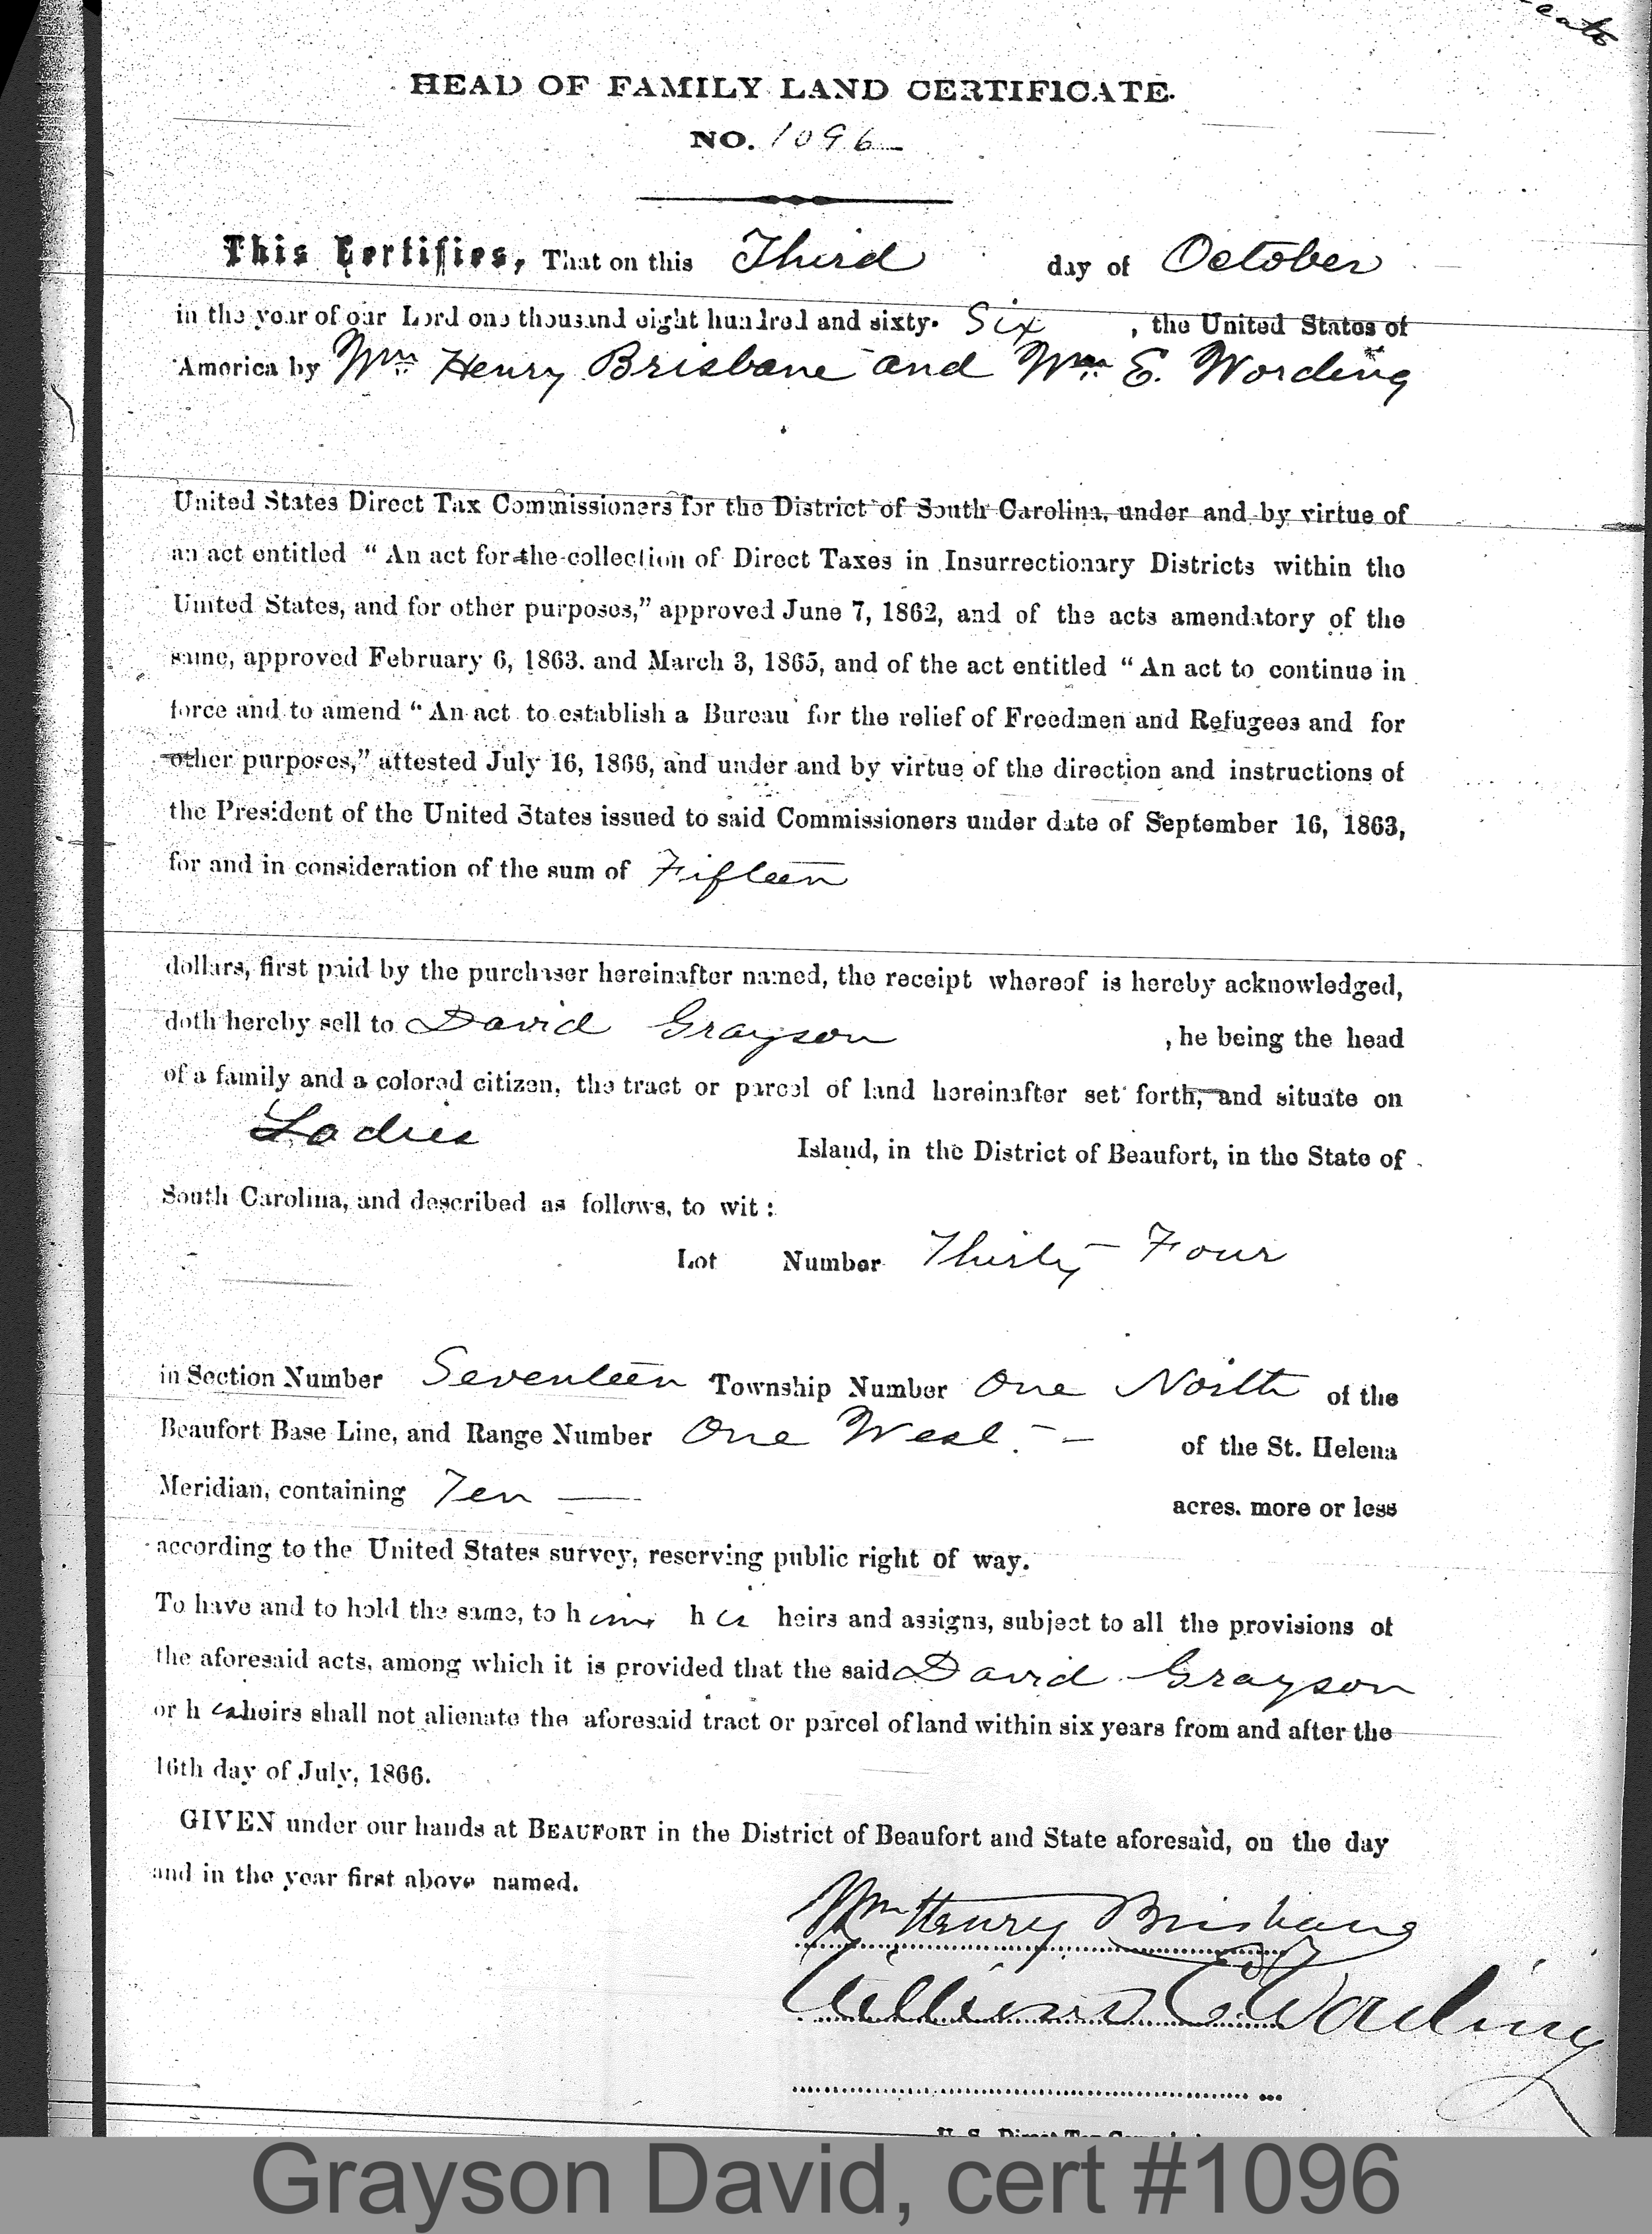 cate
HEAD OF FAMILY LAND CERTIFICATE.
NO. 1096
This Certifies, That on this Third day of October
in the year of our Lord one thousand eight hundred and sixty- Six , the United States of
America by Wm Henry Brisbane and Wm E. Wording
United States Direct Tax Commissioners for the District of South Carolina, under and by virtue of
an act entitled “ An act for the collection of Direct Taxes in Insurrectionary Districts within the
United States, and for other purposes,” approved June 7, 1862, and of the acts amendatory of the
same, approved February 6, 1863. and March 3, 1865, and of the act entitled “ An act to continue in
force and to amend “ An act to establish a Bureau for the relief of Freedmen and Refugees and for
other purposes,” attested July 16, 1866, and under and by virtue of the direction and instructions of
the President of the United States issued to said Commissioners under date of September 16, 1863,
for and in consideration of the sum of Fifteen
dollars, first paid by the purchaser hereinafter named, the receipt whereof is hereby acknowledged,
doth hereby sell to David Grayson , he being the head
of a family and a colored citizen, the tract or parcel of land hereinafter set forth, and situate on
Ladies Island, in the District of Beaufort, in the State of
South Carolina, and described as follows, to wit :
Lot Number Thirty Four
in Section Number Seventeen Township Number One North of the
Beaufort Base Line, and Range Number One West. — of the St. Helena
Meridian, containing Ten — acres. more or less
according to the United States survey, reserving public right of way.
To have and to hold the same, to him his heirs and assigns, subject to all the provisions of
the aforesaid acts, among which it is provided that the said David Grayson
or his heirs shall not alienate the aforesaid tract or parcel of land within six years from and after the
16th day of July, 1866.
GIVEN under our hands at BEAUFORT in the District of Beaufort and State aforesaid, on the day
and in the year first above named.
Wm Henry Brisbane
William E. Wording
U. S. Direct Tax
Grayson David, cert #1096